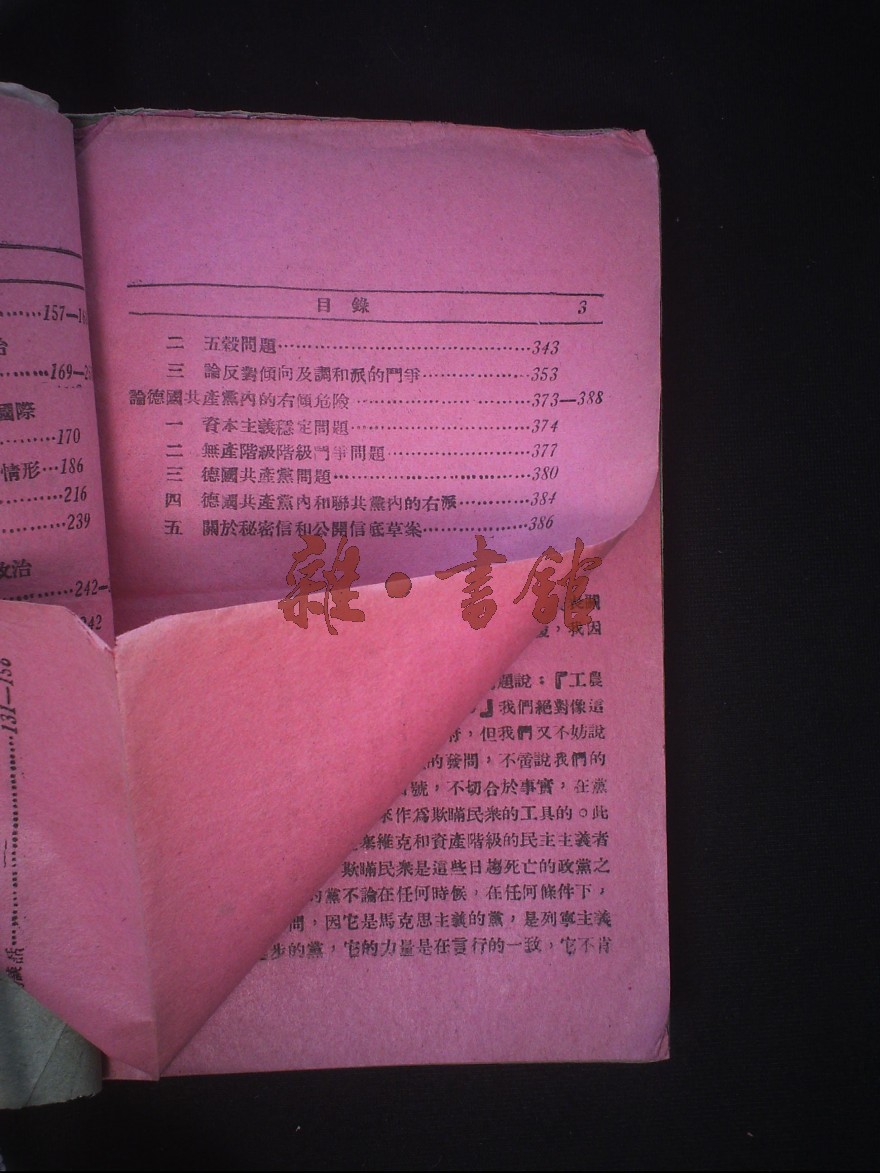 157—
169—
國際
170
情形…186
216
239
政治
242—
242
131—156
目錄 3
二 五穀問題……343
三 論反對傾向及調和派的鬥爭……353
論德國共產黨內的右傾危險……373—388
一 資本主義穩定問題……374
二 無產階級階級鬥爭問題……377
三 德國共產黨問題……380
四 德國共產黨內和聯共黨內的右派……384
五 關於秘密信和公開信底草案……386
雜·書館
,我因
題說:『工農
』我們絕對像這
府,但我們又不妨說
的發問,不啻說我們的
號,不切合於事實,在黨
作為欺瞞民衆的工具的。此
塞維克和資產階級的民主主義者
欺瞞民衆是這些日趨死亡的政黨之
的黨不論在任何時候,在任何條件下,
問,因它是馬克思主義的黨,是列寧主義
步的黨,它的力量是在言行的一致,它不肯